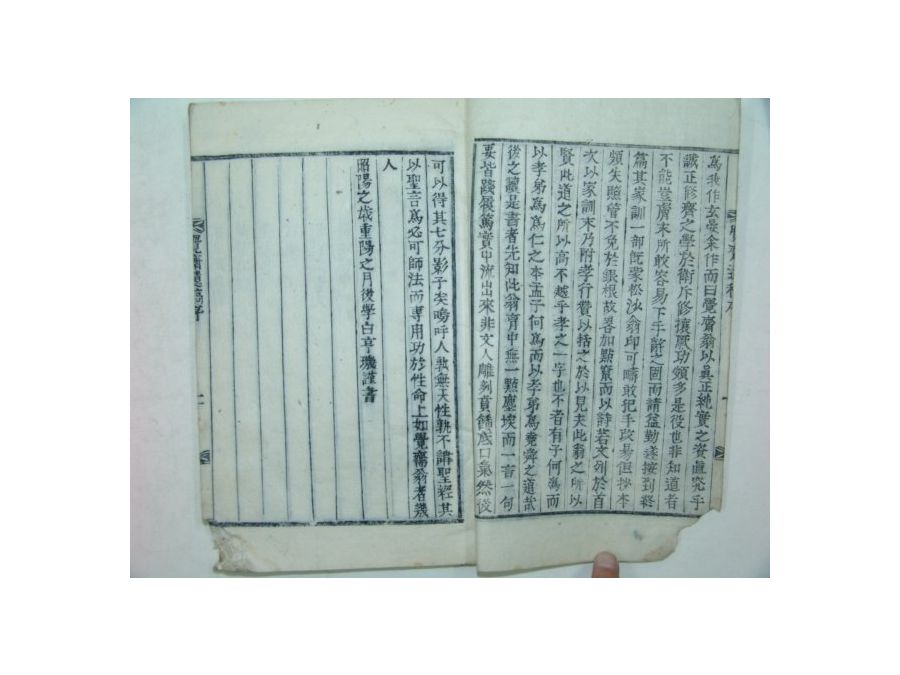 爲我作玄晏余作而曰覺齋翁以眞正純實之資直究乎
誠正修齊之學於衛斥修攘厥功頗多是役也非知道者
不能豈膚末所敢容易下手辭之固而請益勤遂按到終
篇其家訓一部旣蒙松沙翁印可疇敢犯手段易但抄本
頗失照管不免於銀根故畧加點竄而以詩若文列於百
次以家訓末乃附孝行贊以括之於以見夫此翁之所以
賢此道之所以高不越乎孝之一字也不者有子何爲而
以孝弟爲爲仁之本孟子何爲而以孝弟爲堯舜之道哉
後之讀是書者先知此翁胷中無一點塵埃而一言一句
要皆踐履篤實中流出來非文人雕刻賁餙底口氣然後
可以得其七分影子矣嗚呼人孰無天性孰不講聖經其
以聖言爲必可師法而專用功於性命上如覺齋翁者幾
人
昭陽之歲重陽之月後學白亨璣謹書